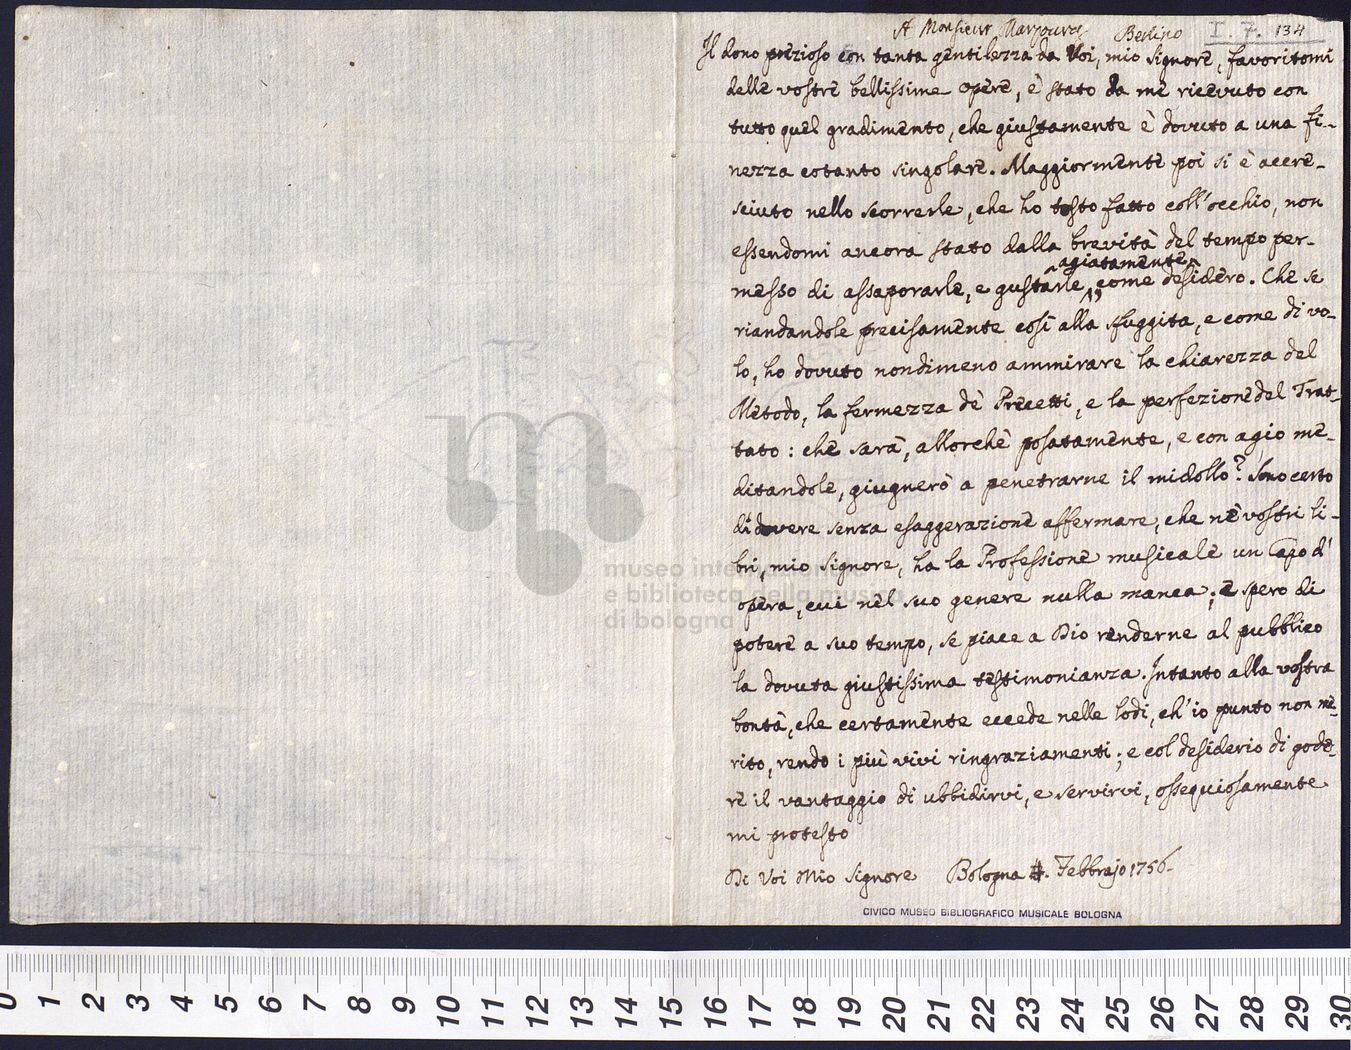 A Monsieur Marpourg Berlino I. 7. 134
Il dono prezioso con tanta gentilezza da Voi, mio Signore, favoritomi
delle vostre bellissime opere, è stato da me ricevuto con
tutto quel gradimento, che giustamente è dovuto a una fi-
nezza cotanto singolare. Maggiormente poi si è accre-
sciuto nello scorrerle, che ho tosto fatto coll'occhio, non
essendomi ancora stato dalla brevità del tempo per-
agiatamente
messo di assaporarle, e gustarle, come desidero. Che se
riandandole precisamente così alla sfuggita, e come di vo-
lo, ho dovuto nondimeno ammirare la chiarezza del
Metodo, la fermezza de' Precetti, e la perfezione del Trat-
tato: che sarà, allorchè posatamente, e con agio me-
ditandole, giugnerò a penetrarne il midollo? Sono certo
di dovere senza esaggerazione affermare, che ne' vostri li-
bri, mio Signore, ha la Professione musicale un Capo d'
opera, cui nel suo genere nulla manca; e spero di
potere a suo tempo, se piace a Dio renderne al pubblico
la dovuta giustissima testimonianza. Intanto alla vostra
bontà, che certamente eccede nelle lodi, ch'io punto non me-
rito, rendo i più vivi ringraziamenti; e col desiderio di gode-
re il vantaggio di ubbidirvi, e servirvi, ossequiosamente
mi protesto
Di Voi Mio Signore Bologna Febbrajo 1756.
CIVICO MUSEO BIBLIOGRAFICO MUSICALE BOLOGNA
museo internazionale
e biblioteca della musica
di bologna
0 1 2 3 4 5 6 7 8 9 10 11 12 13 14 15 16 17 18 19 20 21 22 23 24 25 26 27 28 29 30